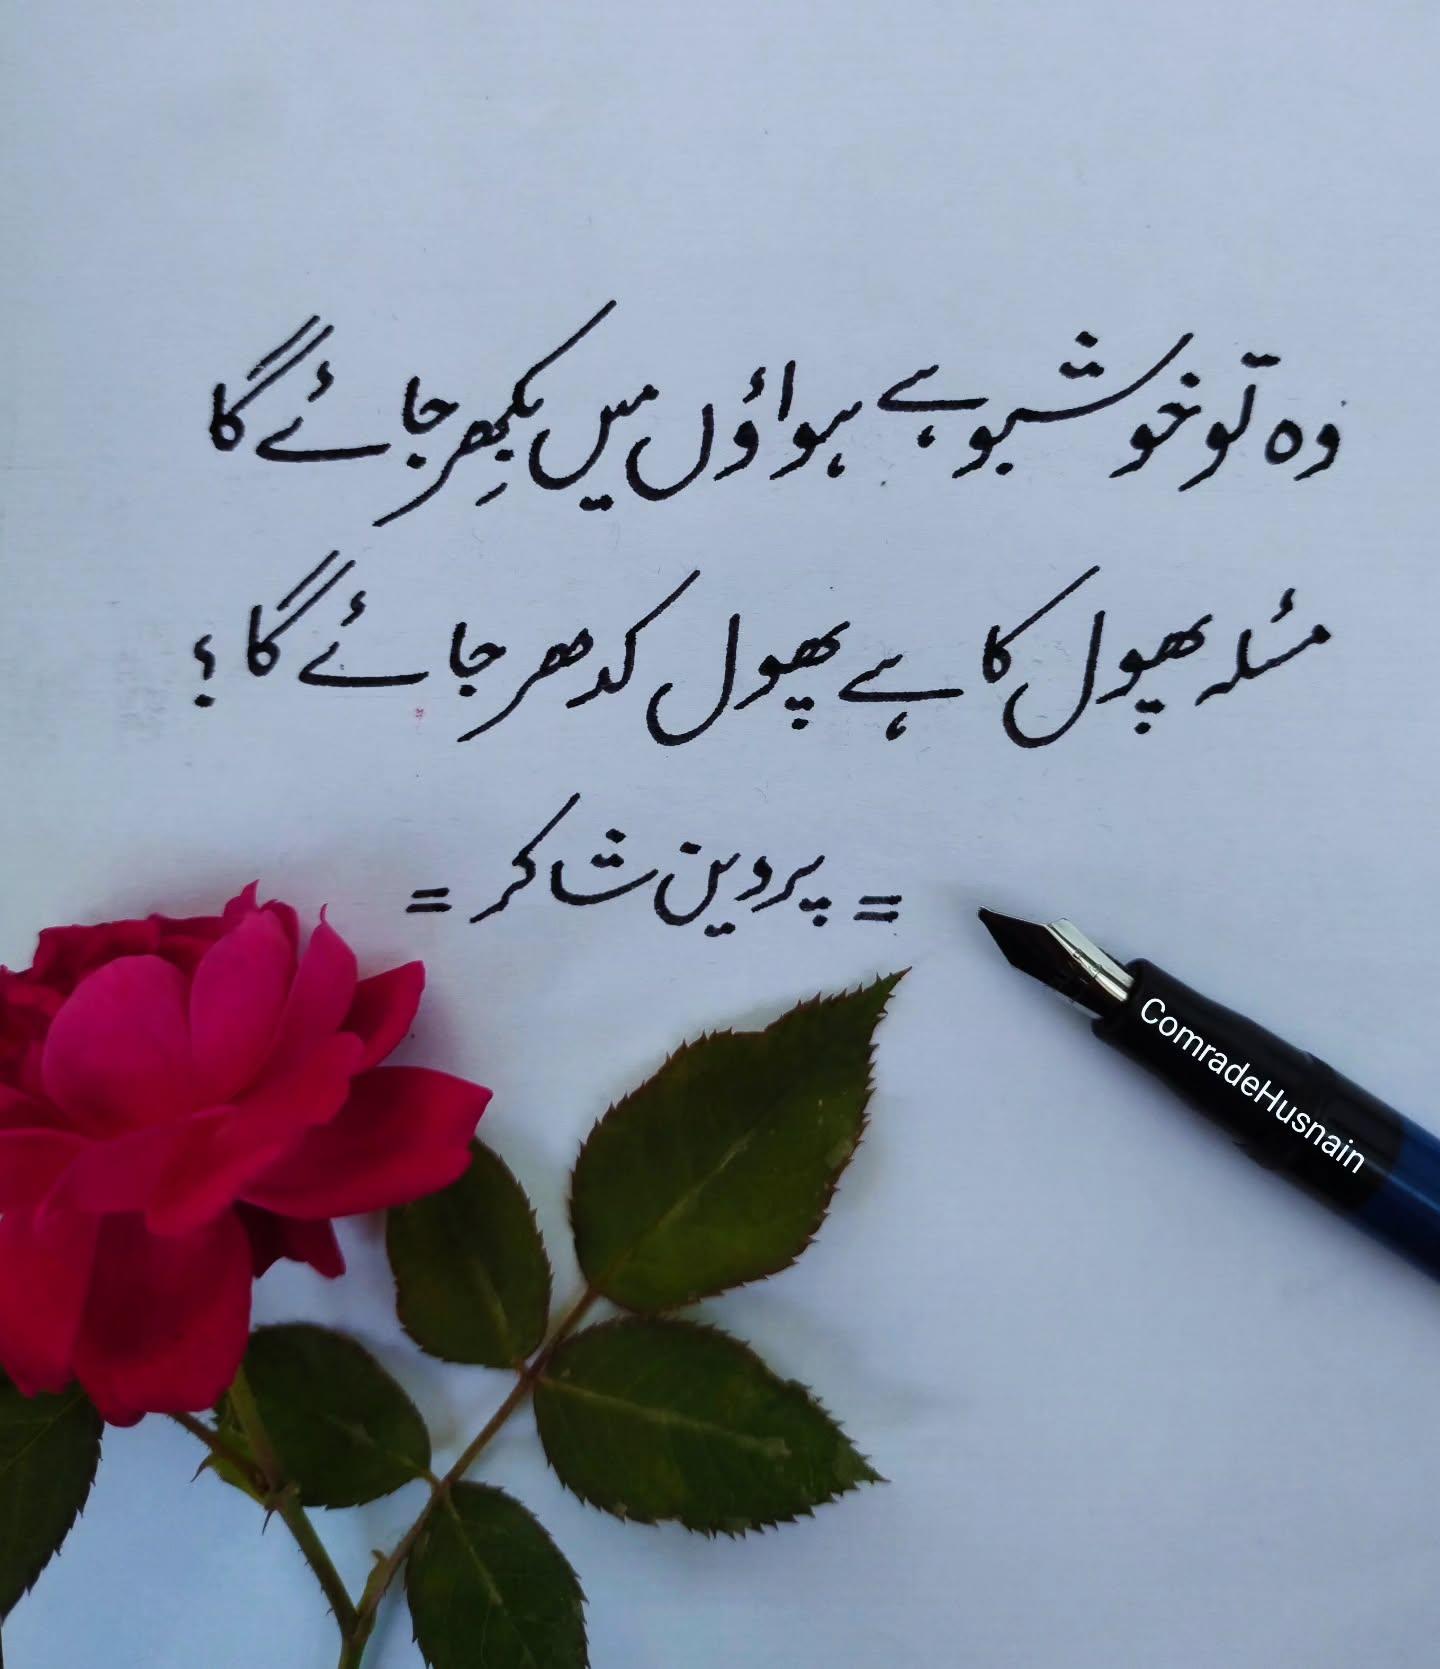 وہ تو خوشبو ہے ہواؤں میں بکھر جائے گا
مسئلہ پھول کا ہے پھول کدھر جائے گا ؟
= پروین شاکر =
ComradeHusnain